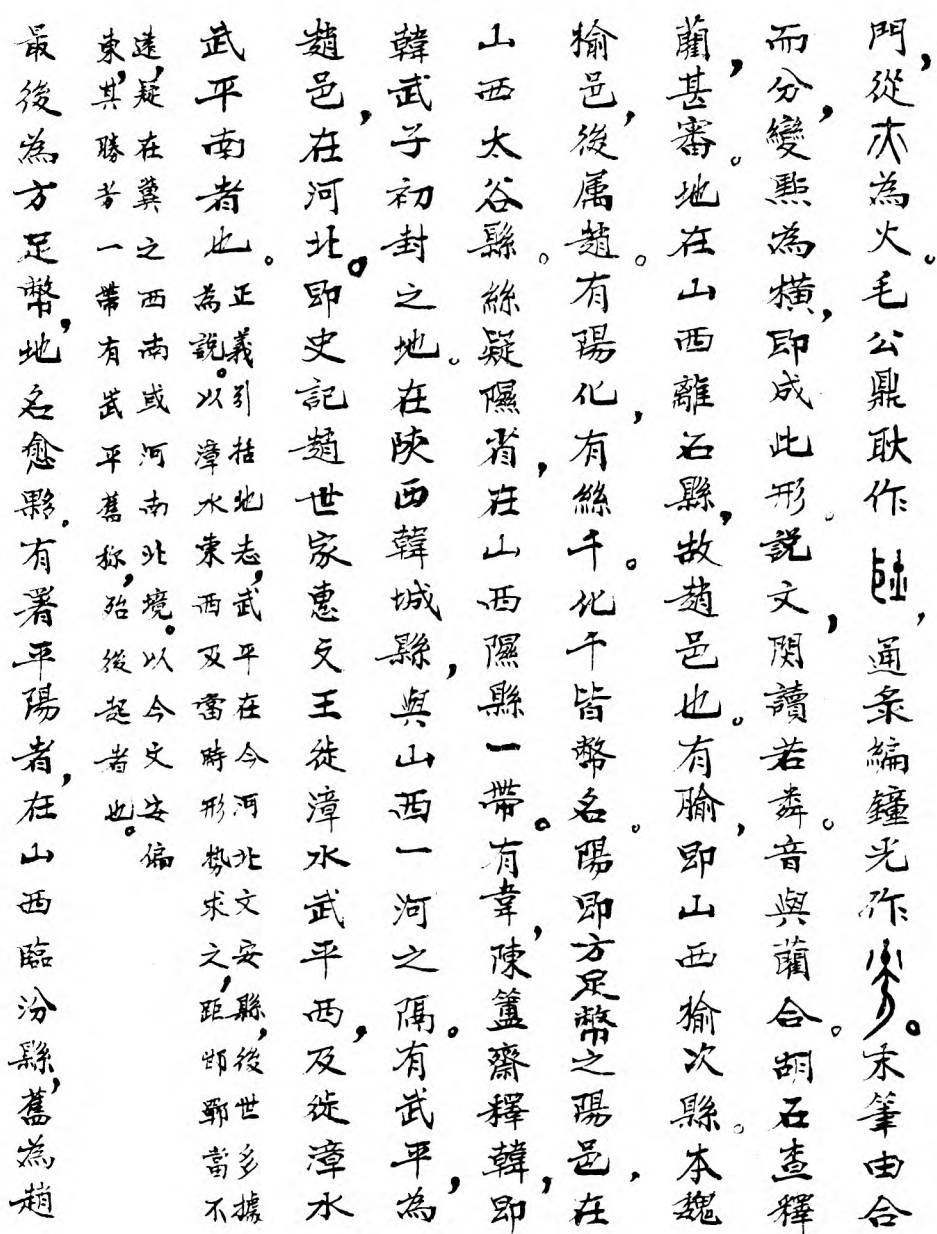 門，從亦為火。毛公鼎耿作，通彔編鐘光作。末筆由合
而分，變點為橫，即成此形。説文，閔讀若粦。音與藺合。胡石查釋
藺，甚審。地在山西離石縣，故趙邑也。有腧，即山西榆次縣。本魏
榆邑，後属趙。有陽化，有絲千。化千皆幣名。陽即方足幣之陽邑，在
山西太谷縣。絲疑隰省，在山西隰縣一帶。有韋，陳簠齋釋韓，即
韓武子初封之地。在陝西韓城縣，與山西一河之隔。有武平，為
趙邑，在河北。即史記趙世家惠文王徙漳水武平西，及徙漳水
武平南者也。
正義引括地志，武平在今河北文安縣，後世多據
為說。以漳水東西及當時形勢求之，距邯鄲當不
遠，疑在冀之西南或河南北境。以今文安偏
東，其勝芳一帶有武平舊称，殆後起者也。
最後為方足幣，地名愈夥。有署平陽者，在山西臨汾縣，舊為趙